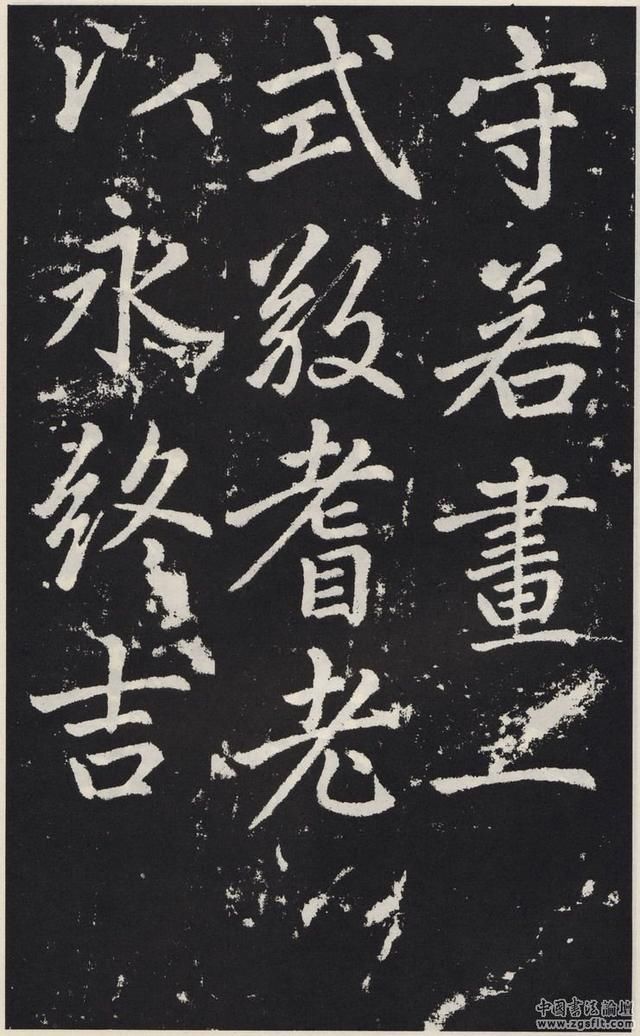 守若畫一
式敬耆老
以永終吉
中國書法論壇
www.zgsflt.com